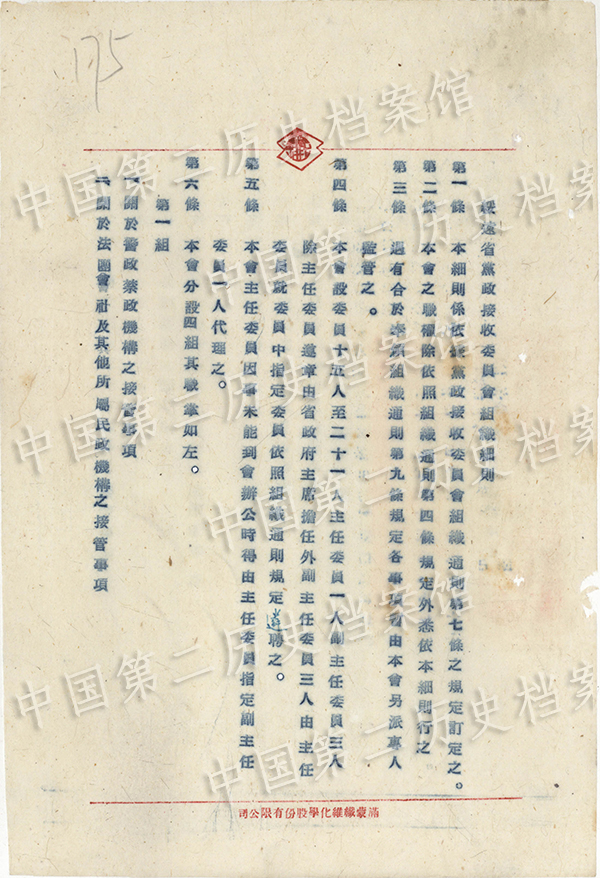 175
綏遠省黨政接收委員會組織細則
第一條 本細則係依據黨政接收委員會組織通則第七條之規定訂定之。
第二條 本會之職權除依照組織通則第四條規定外悉依本細則行之
第三條 遇有合於本組織通則第九條規定各事項得由本會另派專人
監管之。
第四條 本會設委員十五人至二十一人主任委員一人副主任委員三人
除主任委員遵章由省政府主席擔任外副主任委員三人由主任
委員就委員中指定委員依照組織通則規定遴聘之。
第五條 本會主任委員因事未能到會辦公時得由主任委員指定副主任
委員一人代理之。
第六條 本會分設四組其職掌如左。
第一組
一、關於普政蒙政機構之接管事項
二、關於法團會社及其他所屬民政機構之接管事項
滿蒙纖維化學股份有限公司
中国第二历史档案馆
中国第二历史档案馆
中国第二历史档案馆
中国第二历史档案馆
中国第二历史档案馆
中国第二历史档案馆